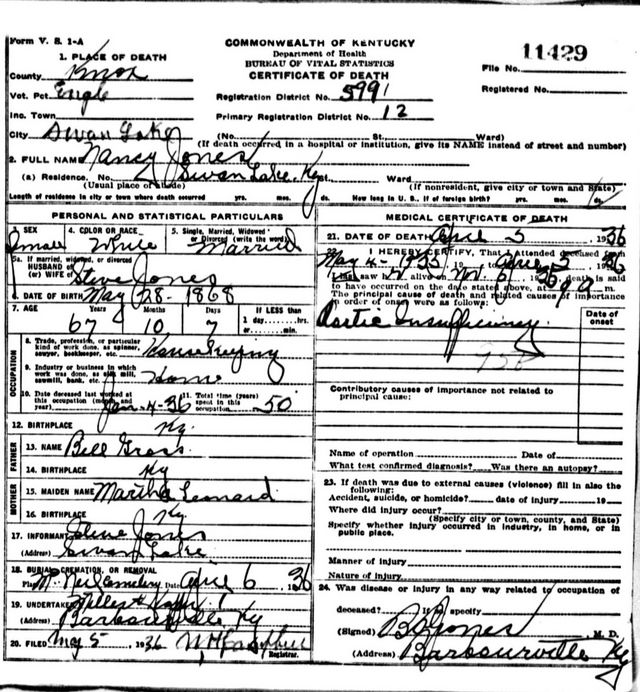 Form V. S. 1-A
COMMONWEALTH OF KENTUCKY
Department of Health
BUREAU OF VITAL STATISTICS
CERTIFICATE OF DEATH
File No. 11429
Registered No.
1. PLACE OF DEATH
County Knox
Vot. Pct. Engle
Inc. Town
City Swan Lake
Registration District No. 5991
Primary Registration District No. 12
(No. St. Ward)
(If death occurred in a hospital or institution, give its NAME instead of street and number)
2. FULL NAME Nancy Jones
(a) Residence. No. Swan Lake, Ky St. Ward
(Usual place of abode) (If nonresident, give city or town and State)
Length of residence in city or town where death occurred yrs. mos. ds. How long in U. S., if of foreign birth? yrs. mos. ds.
PERSONAL AND STATISTICAL PARTICULARS
3. SEX
4. COLOR OR RACE White
5. Single, Married, Widowed or Divorced (write the word) Married
5a. If married, widowed, or divorced
HUSBAND of
(or) WIFE of Steve Jones
6. DATE OF BIRTH May 28 - 1868
7. AGE Years Months Days If LESS than
67 10 7 1 day hrs.
or min.
OCCUPATION
8. Trade, profession, or particular
kind of work done, as spinner,
sawyer, bookkeeper, etc. Housekeeping
9. Industry or business in which
work was done, as silk mill,
sawmill, bank, etc. Home
10. Date deceased last worked at
this occupation (month and
year) Jan-4-36
11. Total time (years)
spent in this
occupation 50
12. BIRTHPLACE Ky.
FATHER
13. NAME Bill Gross
14. BIRTHPLACE Ky
MOTHER
15. MAIDEN NAME Martha Leonard
16. BIRTHPLACE Ky.
17. INFORMANT Jones
(Address) Swan Lake
18. BURIAL, CREMATION, OR REMOVAL
Place Cemetery Date April 6 1936
19. UNDERTAKER
Barbourville Ky
20. FILED May 5 1936
Registrar.
MEDICAL CERTIFICATE OF DEATH
21. DATE OF DEATH April 5 1936
22. I HEREBY CERTIFY, That I attended deceased from
May 4 1935 to April 5 1936
I last saw h alive on 1936 death is said
to have occurred on the date stated above, at m.
The principal cause of death and related causes of importance
in order of onset were as follows:
Date of
onset
Aortic Insufficiency
Contributory causes of importance not related to
principal cause:
Name of operation Date of
What test confirmed diagnosis? Was there an autopsy?
23. If death was due to external causes (violence) fill in also the
following:
Accident, suicide, or homicide? date of injury 19
Where did injury occur?
(Specify city or town, county, and State)
Specify whether injury occurred in industry, in home, or in
public place.
Manner of injury
Nature of injury
24. Was disease or injury in any way related to occupation of
deceased? If so specify
(Signed) Jones M. D.
(Address) Barbourville Ky